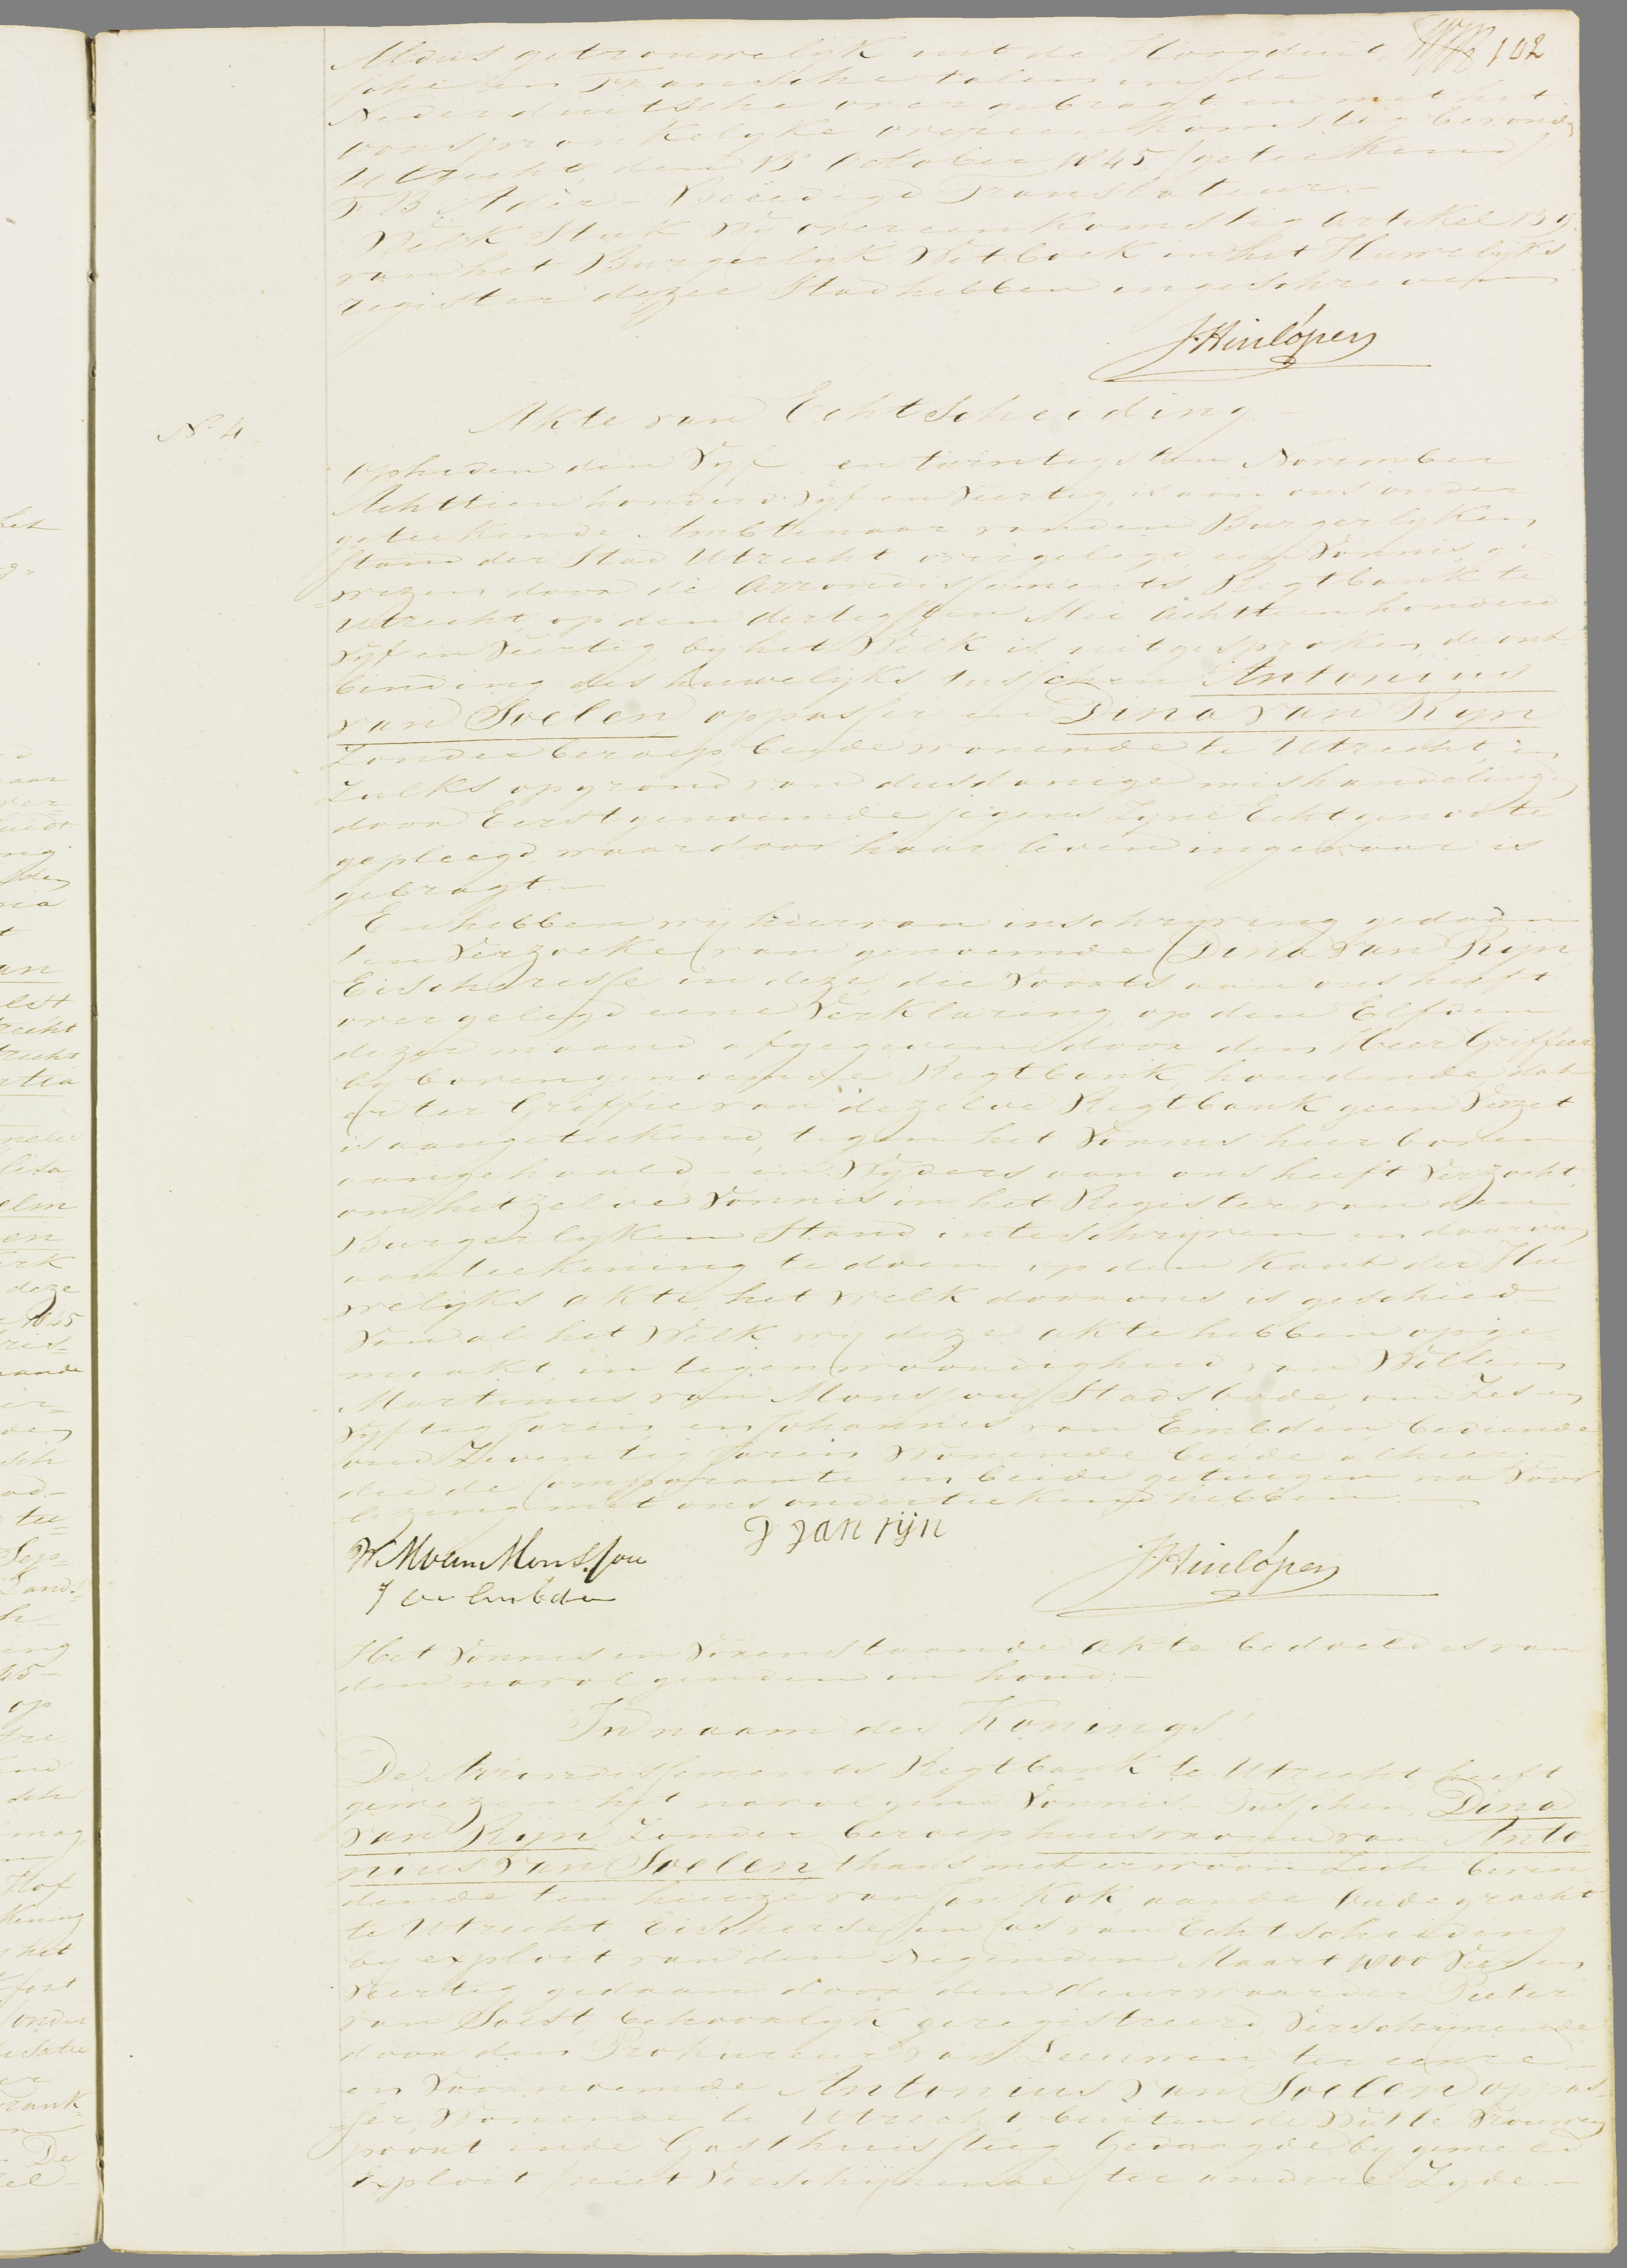 102
Aldus getrouwelijk uit de Hoogduit-
sche en Fransche talen in de
Nederduitsche overgebragt en met het
oorspronkelyke overeenkomstig bevonden
Utrecht den 13 October 1845 (geteekend)
F B Adèr - Beëedigd Translateur. -
Welk Stuk Wij overeenkomstig artikel 139.
van het Burgerlyk Wetboek in het Huwelijks
register dezer Stad hebben ingeschreven
J. Hinlópen
Akte van Echtscheiding -
No. 4
Opheden den Vyf en twintigsten November
Achttien honderd Vyf en Veertig, is aan ons onder
geteekende Ambtenaar van den Burgerlyken
stand der Stad Utrecht overgelegd een Vonnis, ge-
wezen door de Arrondissements Regtbank te
Utrecht, op den dertigsten Mei Achttien honderd
Vyf en Veertig, by het Welk is uitgesproken, de ont
binding des huwelyks tusschen Antonius
van Soelen oppasser en Dina van Ryn
Zonder beroep, beide wonende te Utrecht, en
Zulks op grond van dusdanige mishandelingen
door Eerstgenoemde jegens Zyne Echtgenoote
gepleegd, waardoor haar leven in gevaar is
gebragt. -
En hebben wij hiervan inschryving gedaan
ten Verzoeke van genoemde Dina van Rijn
Eischeresse in deze, die Voorts aan ons heeft
overgelegd eene Verklaring, op den Elfden
dezer maand afgegeven door den Heer Griffier
by bovengenoemde Regtbank, houdende, dat
er ter Griffie van dezelve Regtbank geen Verzet
is aangeteekend, tegen het Vonnis hier boven
aangehaald - en Wyders aan ons heeft Verzocht,
om hetzelve Vonnis in het Register van den
Burgerlyken Stand inteschryven en daarvan
aanteekening te doen op den Kant der Hu
welijks akte, het welk door ons is geschied -
Van al het Welk wij deze akte hebben opge-
maakt, in tegenwoordigheid van Willem
Martinus van Monsjou Stadsbode, oud Zes en
Vyftig Jaren en Johannes van Embden bediende
oud Zeventig Jaren Wonende beide alhier. -
die de Comparante en beide getuigen na Voor
lezing met ons onderteekend hebben. -
D van rijn
W M van Monsjou
J van Embden
J. Hinlópen
Het Vonnis in Vorenstaande Akte bedoeld is van
den navolgenden in houd: -
In naam des Konings!
De Arrondissements Regtbank te Utrecht heeft
gewezen het navolgend Vonnis. Tusschen Dina
van Rijn Zonder beroep huisvrouw van Anto-
nius van Soelen, thans met er woon Zich bevin
dende ten huize van Jan Kok, aan de Oude gracht
te Utrecht, Eischeresse in Cas van Echtscheiding
by exploit van den Negenden Maart 1800 Vier en
Veertig, gedaan door den deurwaarder Pieter
van Soest, behoorlyk geregistreerd, Verschynende
door den Prokureur van Leeuwen, ter eenre -
en Voornoemde Antonius van Soelen oppas-
ser, Wonende te Utrecht, buiten de Witte Vrouwen
poort in de Gasthuissteeg Gedaagde by gemeld
Exploit / niet Verschijnende / ter andere Zyde -